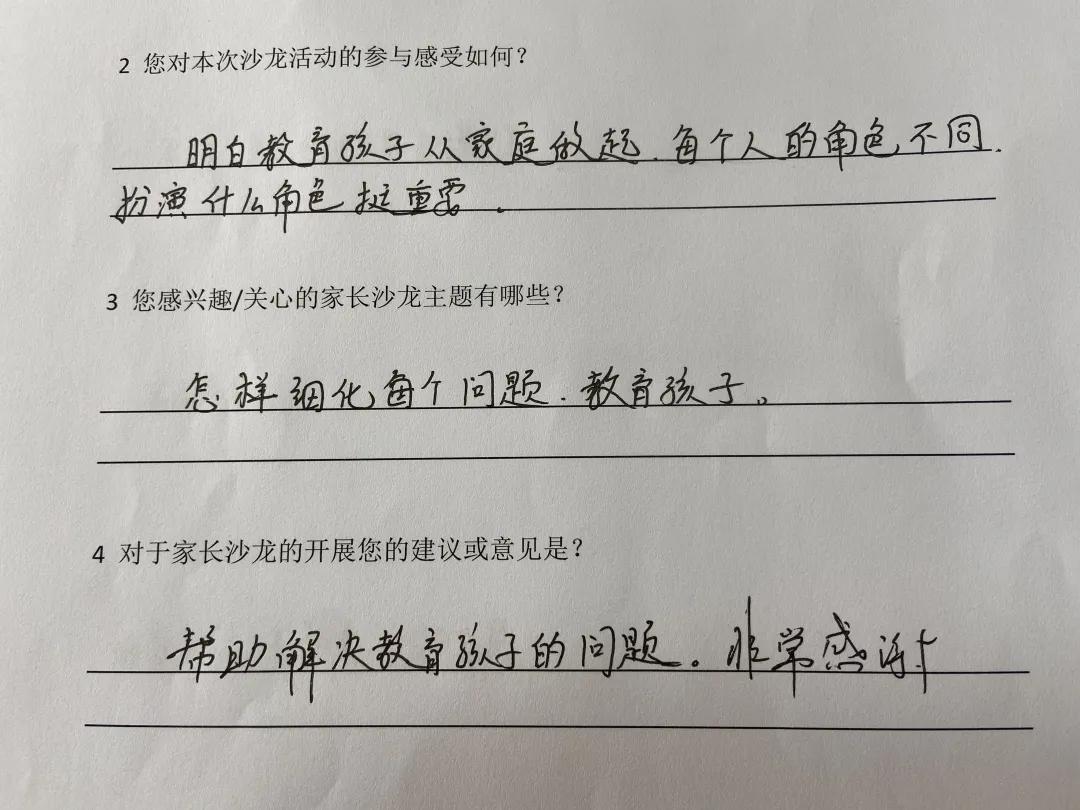 2 您对本次沙龙活动的参与感受如何？
明白教育孩子从家庭做起.每个人的角色不同.
扮演什么角色挺重要.
3 您感兴趣/关心的家长沙龙主题有哪些？
怎样细化每个问题.教育孩子。
4 对于家长沙龙的开展您的建议或意见是？
帮助解决教育孩子的问题。非常感谢